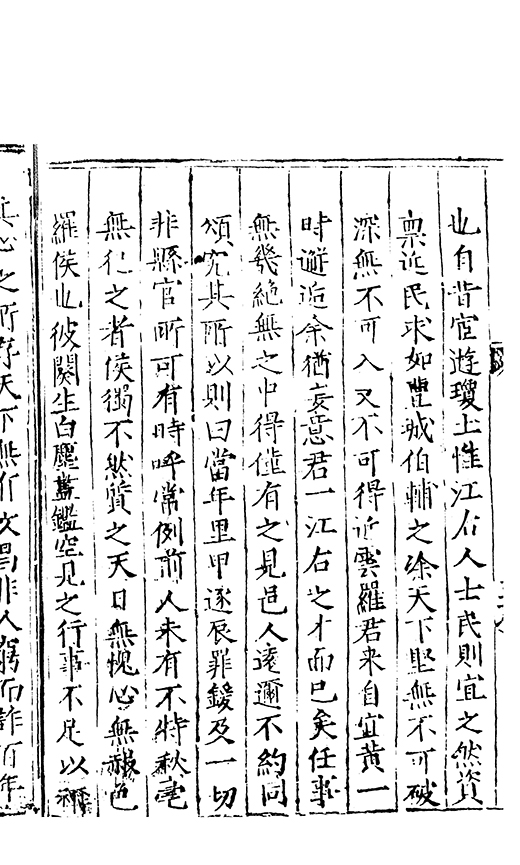 也自昔宦遊瓊上惟江右人士民則宜之然資
禀近民求如豐城伯輔之涂天下堅無不可破
深無不可入又不可得近雲羅君来自宜黄一
時邂逅余猶妄意君一江右之才而已矣任事
無幾絶無之中得僅有之見邑人逺邇不約同
頌究其所以則曰當年里甲逐辰罪鍰及一切
非縣官所可有時呼常例前人未有不特秋毫
無犯之者侯獨不然質之天日無愧心無赧色
羅侯也彼関生白塵蓋鑑空見之行事不足以
真心之所存天下無